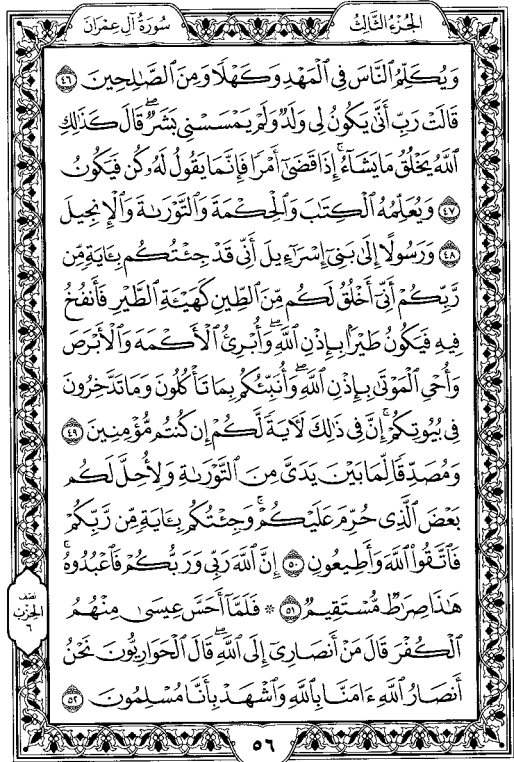 سُورَةُ آلِ عِمْرَانَ
الجُزْءُ الثَّالِثُ
وَيُكَلِّمُ النَّاسَ فِي الْمَهْدِ وَكَهْلًا وَمِنَ الصَّالِحِينَ ٤٦
قَالَتْ رَبِّ أَنَّىٰ يَكُونُ لِي وَلَدٌ وَلَمْ يَمْسَسْنِي بَشَرٌ ۖ قَالَ كَذَٰلِكِ
اللَّهُ يَخْلُقُ مَا يَشَاءُ ۚ إِذَا قَضَىٰ أَمْرًا فَإِنَّمَا يَقُولُ لَهُ كُن فَيَكُونُ
٤٧ وَيُعَلِّمُهُ الْكِتَٰبَ وَالْحِكْمَةَ وَالتَّوْرَىٰةَ وَالْإِنجِيلَ
٤٨ وَرَسُولًا إِلَىٰ بَنِي إِسْرَٰٓءِيلَ أَنِّي قَدْ جِئْتُكُم بِـَٔايَةٍ مِّن
رَّبِّكُمْ أَنِّي أَخْلُقُ لَكُم مِّنَ الطِّينِ كَهَيْـَٔةِ الطَّيْرِ فَأَنفُخُ
فِيهِ فَيَكُونُ طَيْرًا بِإِذْنِ اللَّهِ ۖ وَأُبْرِئُ الْأَكْمَهَ وَالْأَبْرَصَ
وَأُحْيِ الْمَوْتَىٰ بِإِذْنِ اللَّهِ ۖ وَأُنَبِّئُكُم بِمَا تَأْكُلُونَ وَمَا تَدَّخِرُونَ
فِي بُيُوتِكُمْ ۚ إِنَّ فِي ذَٰلِكَ لَآيَةً لَّكُمْ إِن كُنتُم مُّؤْمِنِينَ ٤٩
وَمُصَدِّقًا لِّمَا بَيْنَ يَدَيَّ مِنَ التَّوْرَىٰةِ وَلِأُحِلَّ لَكُم
بَعْضَ الَّذِي حُرِّمَ عَلَيْكُمْ ۚ وَجِئْتُكُم بِـَٔايَةٍ مِّن رَّبِّكُمْ
فَاتَّقُوا اللَّهَ وَأَطِيعُونِ ٥٠ إِنَّ اللَّهَ رَبِّي وَرَبُّكُمْ فَاعْبُدُوهُ ۗ
هَٰذَا صِرَٰطٌ مُّسْتَقِيمٌ ٥١ * فَلَمَّا أَحَسَّ عِيسَىٰ مِنْهُمُ
الْكُفْرَ قَالَ مَنْ أَنصَارِي إِلَى اللَّهِ ۖ قَالَ الْحَوَارِيُّونَ نَحْنُ
أَنصَارُ اللَّهِ ءَامَنَّا بِاللَّهِ وَاشْهَدْ بِأَنَّا مُسْلِمُونَ ٥٢
نصف
الحزب
٦
٥٦